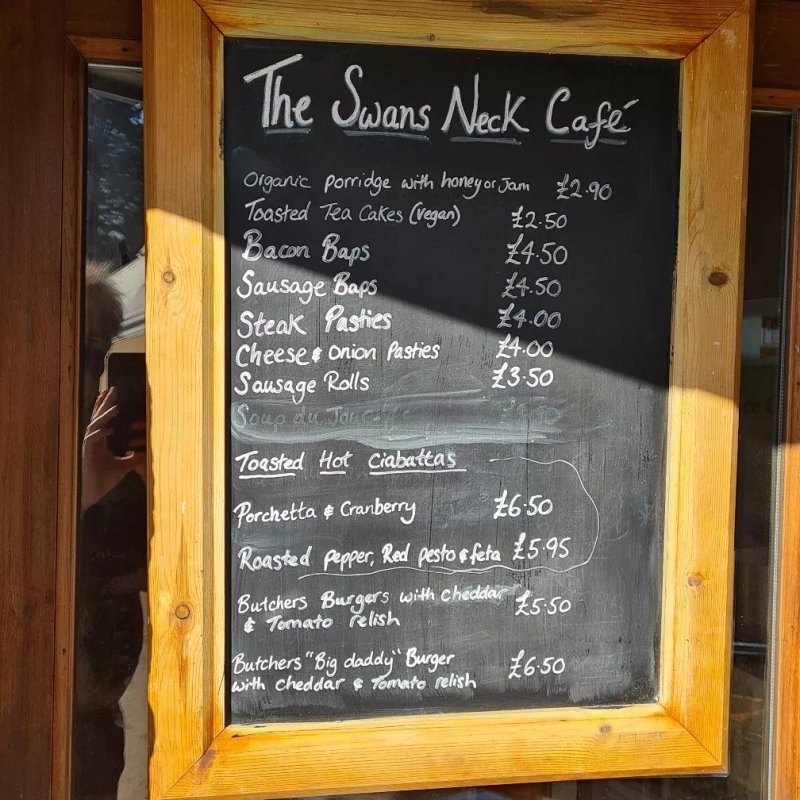 The Swans Neck Café
Organic porridge with honey or Jam £2.90
Toasted Tea Cakes (vegan) £2.50
Bacon Baps £4.50
Sausage Baps £4.50
Steak Pasties £4.00
Cheese & Onion Pasties £4.00
Sausage Rolls £3.50
Soup du Jour
Toasted Hot Ciabattas
Porchetta & Cranberry £6.50
Roasted pepper, Red pesto & feta £5.95
Butchers Burgers with cheddar £5.50
& Tomato relish
Butchers "Big daddy" Burger £6.50
with cheddar & Tomato relish